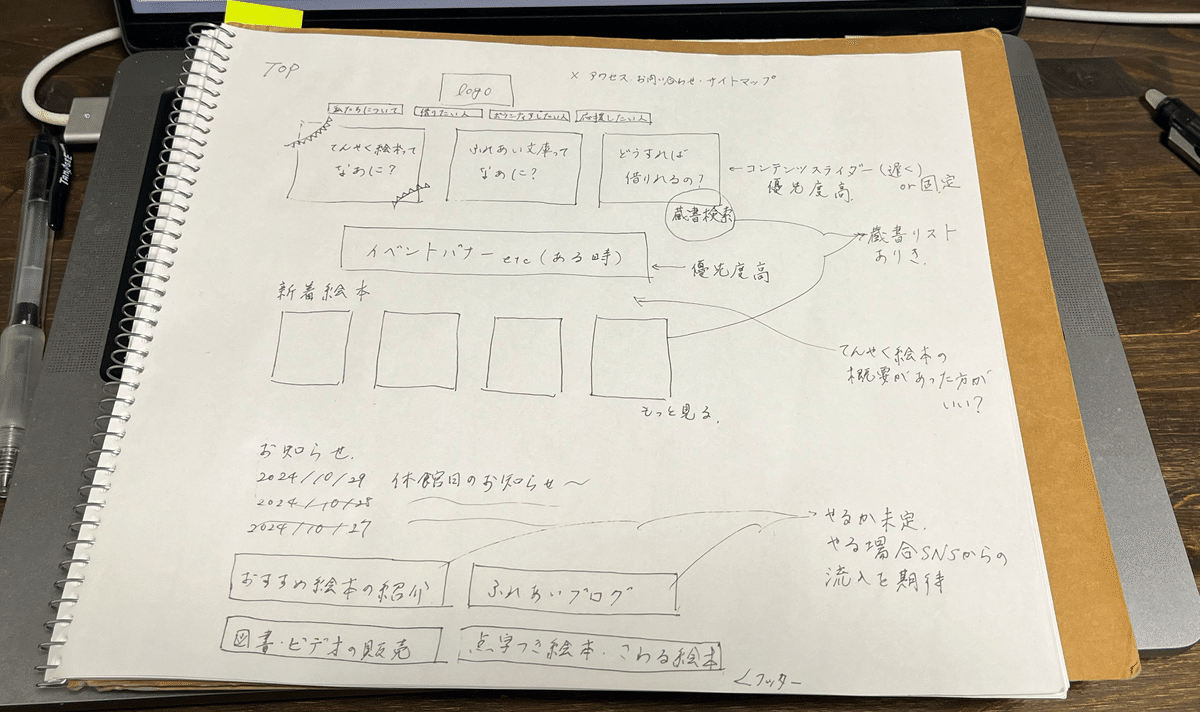 TOP
× アクセス・お問い合わせ・サイトマップ
logo
私たちについて
借りたい人
ボランティアしたい人
応援したい人
てんやく絵本って
なあに?
ふれあい文庫って
なあに?
どうすれば
借りれるの?
←コンテンツスライダー(遅く)
優先度高
or 固定
蔵書検索
→蔵書リスト
ありき.
イベントバナー etc (ある時)
← 優先度高
新着絵本
てんやく絵本の
概要があった方が
いい?
もっと見る.
お知らせ.
2024/10/29 休館日のお知らせ〜
2024/10/28
2024/10/27
→やるか未定.
やる場合SNSからの
流入を期待
おすすめ絵本の紹介
ふれあいブログ
図書・ビデオの販売
点字つき絵本・さわる絵本
フッター
TANJORE